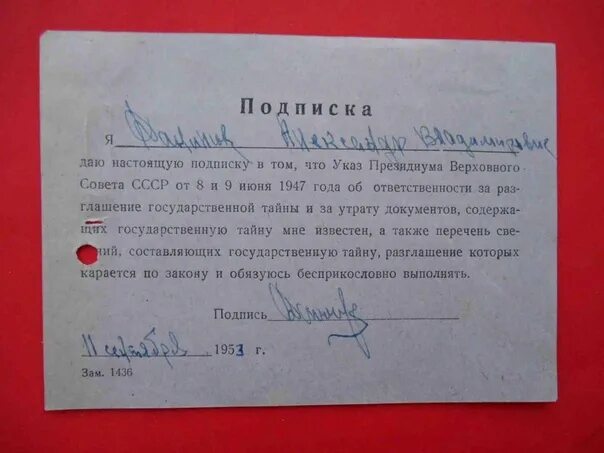 Подписка
Я Данилов Александр Владимирович
даю настоящую подписку в том, что Указ Президиума Верховного
Совета СССР от 8 и 9 июня 1947 года об ответственности за раз-
глашение государственной тайны и за утрату документов, содержа-
щих государственную тайну мне известен, а также перечень све-
ний, составляющих государственную тайну, разглашение которых
карается по закону и обязуюсь бесприкословно выполнять.
Подпись
11 сентября 1953 г.
Зам. 1436